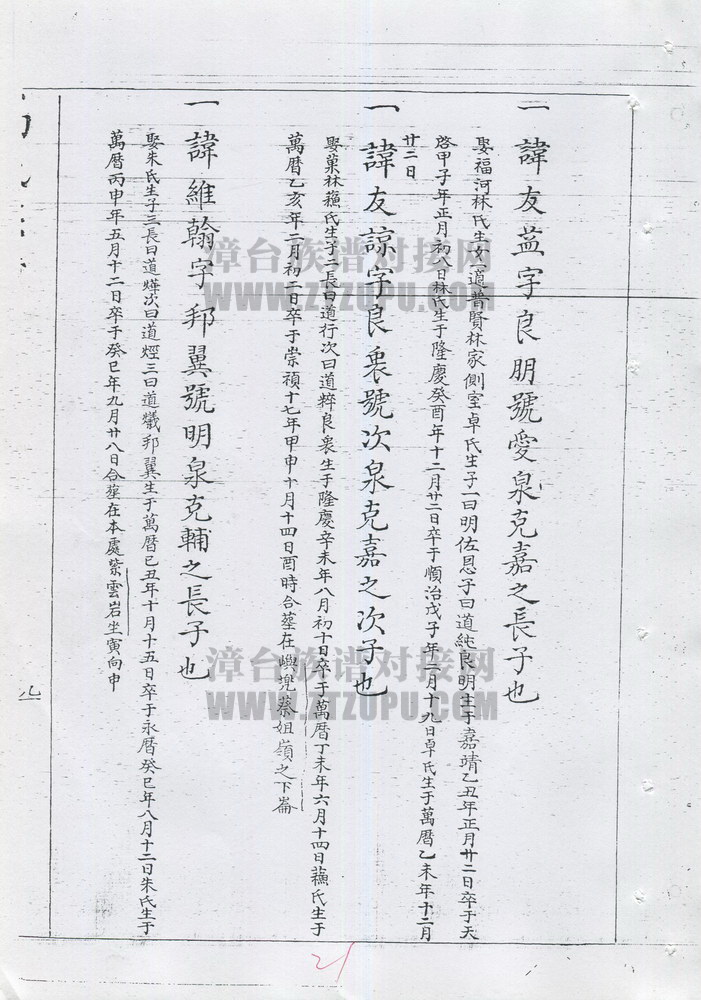 一諱友益字良朋號愛泉克嘉之長子也
娶福河林氏生女一適普賢林家側室卓氏生子一曰明佐恩子曰道純良明生于嘉靖乙丑年正月廿二日卒于天
啓甲子年正月初八日林氏生于隆慶癸酉年十二月廿二日卒于順治戊子年二月十九日卓氏生于萬曆乙未年十二月
廿二日
一諱友諒字良衷號次泉克嘉之次子也
娶菓林蘓氏生子二長曰道行次曰道粹良衷生于隆慶辛未年八月初十日卒于萬曆丁未年六月十四日蘓氏生于
萬曆乙亥年二月初二日卒于崇禎十七年甲申十月十四日酉時合塟在嶼兜蔡姐嶺之下崙
一諱維翰字邦翼號明泉克輔之長子也
娶朱氏生子三長曰道燁次曰道烴三曰道爔邦翼生于萬曆己丑年十月十五日卒于永曆癸巳年八月十二日朱氏生于
萬曆丙申年五月十二日卒于癸巳年九月廿八日合塟在本處紫雲岩坐寅向申
漳台族谱对接网
WWW.ZTZUPU.COM
漳台族谱对接网
WWW.ZTZUPU.COM
21